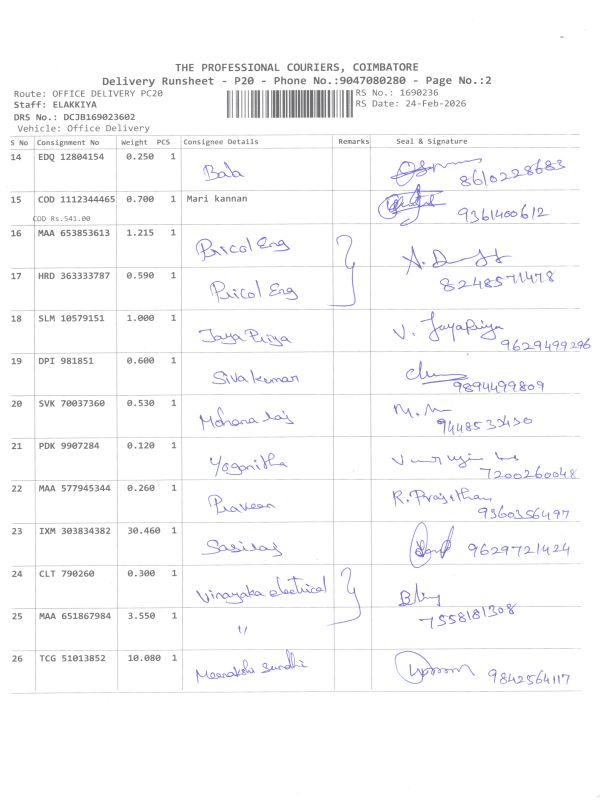 THE PROFESSIONAL COURIERS, COIMBATORE
Delivery Runsheet - P20 - Phone No.:9047080280 - Page No.:2
Route: OFFICE DELIVERY PC20
RS No.: 1690236
Staff: ELAKKIYA
RS Date: 24-Feb-2026
DRS No.: DCJB169023602
Vehicle: Office Delivery
S No Consignment No Weight PCS Consignee Details Remarks Seal & Signature
14 EDQ 12804154 0.250 1 Bala 8610228683
15 COD 1112344465 0.700 1 Mari kannan 9361400612
COD Rs.541.00
16 MAA 653853613 1.215 1 Pricol Eng
17 HRD 363333787 0.590 1 Pricol Eng 8248571478
18 SLM 10579151 1.000 1 Jaya Priya V. JayaPriya 9629499296
19 DPI 981851 0.600 1 Sivakumar 9894499809
20 SVK 70037360 0.530 1 Mohana raj
21 PDK 9907284 0.120 1 Yoganitha 7200260048
22 MAA 577945344 0.260 1 Praveen 9360356497
23 IXM 303834382 30.460 1 Sasiraj 9629721424
24 CLT 790260 0.300 1 Vinayaka electrical
25 MAA 651867984 3.550 1 〃 7558181308
26 TCG 51013852 10.080 1 Meenakshi 9842564117